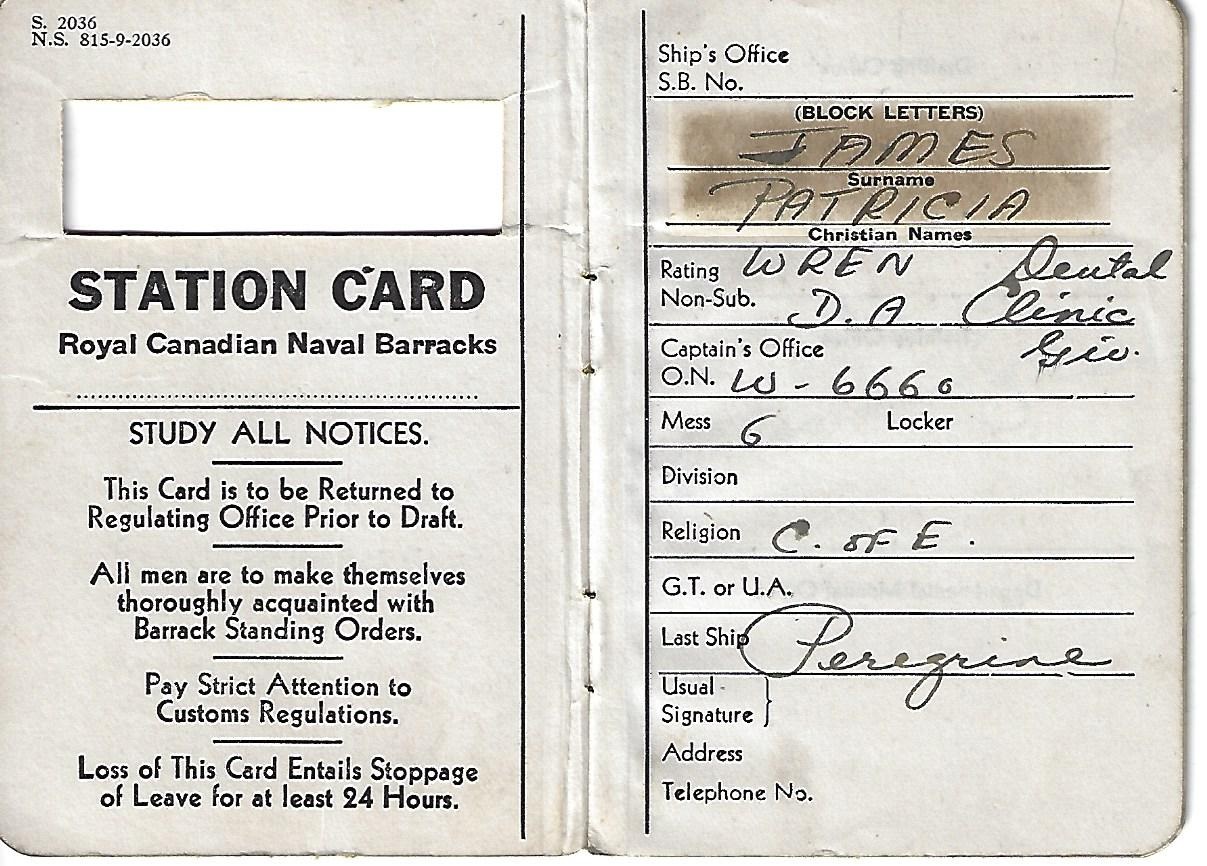 S. 2036
N.S. 815-9-2036
STATION CARD
Royal Canadian Naval Barracks
STUDY ALL NOTICES.
This Card is to be Returned to
Regulating Office Prior to Draft.
All men are to make themselves
thoroughly acquainted with
Barrack Standing Orders.
Pay Strict Attention to
Customs Regulations.
Loss of This Card Entails Stoppage
of Leave for at least 24 Hours.
Ship's Office
S.B. No.
(BLOCK LETTERS)
JAMES
Surname
PATRICIA
Christian Names
Rating WREN Dental
Non-Sub. D.A Clinic
Captain's Office
O.N. W-6660
Mess 6 Locker
Division
Religion C. OF E.
G.T. or U.A.
Last Ship Peregrine
Usual
Signature
Address
Telephone No.